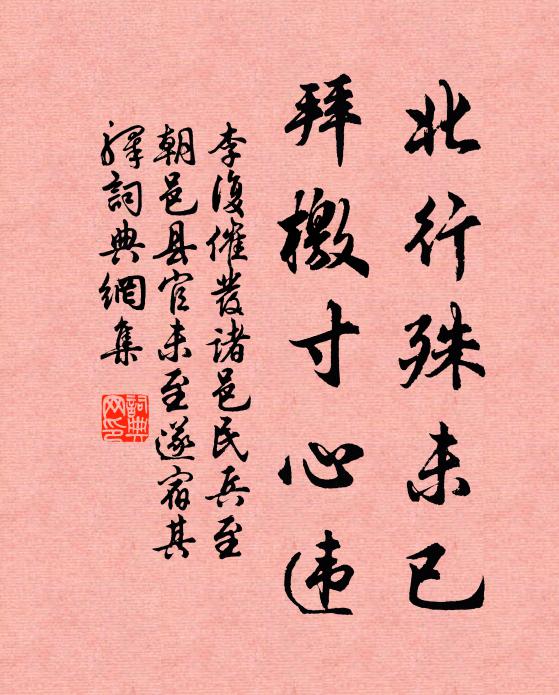 北行殊未已
拜檄寸心违
李復催發諸邑民兵至
朝邑县官未至遂宿其
驛詞典網集
詞典
网印